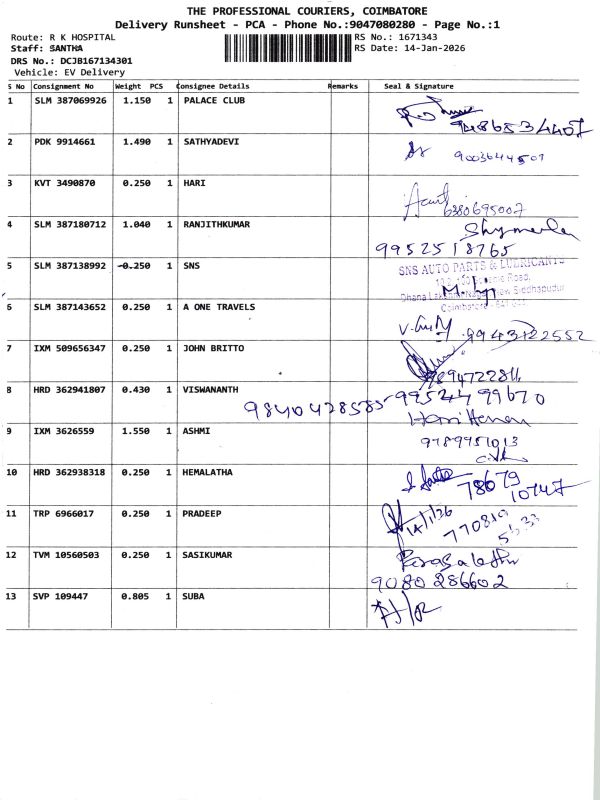 THE PROFESSIONAL COURIERS, COIMBATORE
Delivery Runsheet - PCA - Phone No.:9047080280 - Page No.:1
Route: R K HOSPITAL RS No.: 1671343
Staff: SANTHA RS Date: 14-Jan-2026
DRS No.: DCJB167134301
Vehicle: EV Delivery
S No Consignment No Weight PCS Consignee Details Remarks Seal & Signature
1 SLM 387069926 1.150 1 PALACE CLUB
9486534407
2 PDK 9914661 1.490 1 SATHYADEVI
9003644501
3 KVT 3490870 0.250 1 HARI
6380695007
4 SLM 387180712 1.040 1 RANJITHKUMAR
9952518765
5 SLM 387138992 0.250 1 SNS
SNS AUTO PARTS & LUBRICANTS
6 SLM 387143652 0.250 1 A ONE TRAVELS
9943122552
7 IXM 509656347 0.250 1 JOHN BRITTO
8 HRD 362941807 0.430 1 VISWANANTH
9 IXM 3626559 1.550 1 ASHMI
10 HRD 362938318 0.250 1 HEMALATHA
78679
10747
11 TRP 6966017 0.250 1 PRADEEP
14/1/26
770819
5633
12 TVM 10560503 0.250 1 SASIKUMAR
9080286602
13 SVP 109447 0.805 1 SUBA